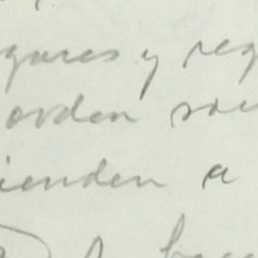 gares y reg
orden soci
ienden a